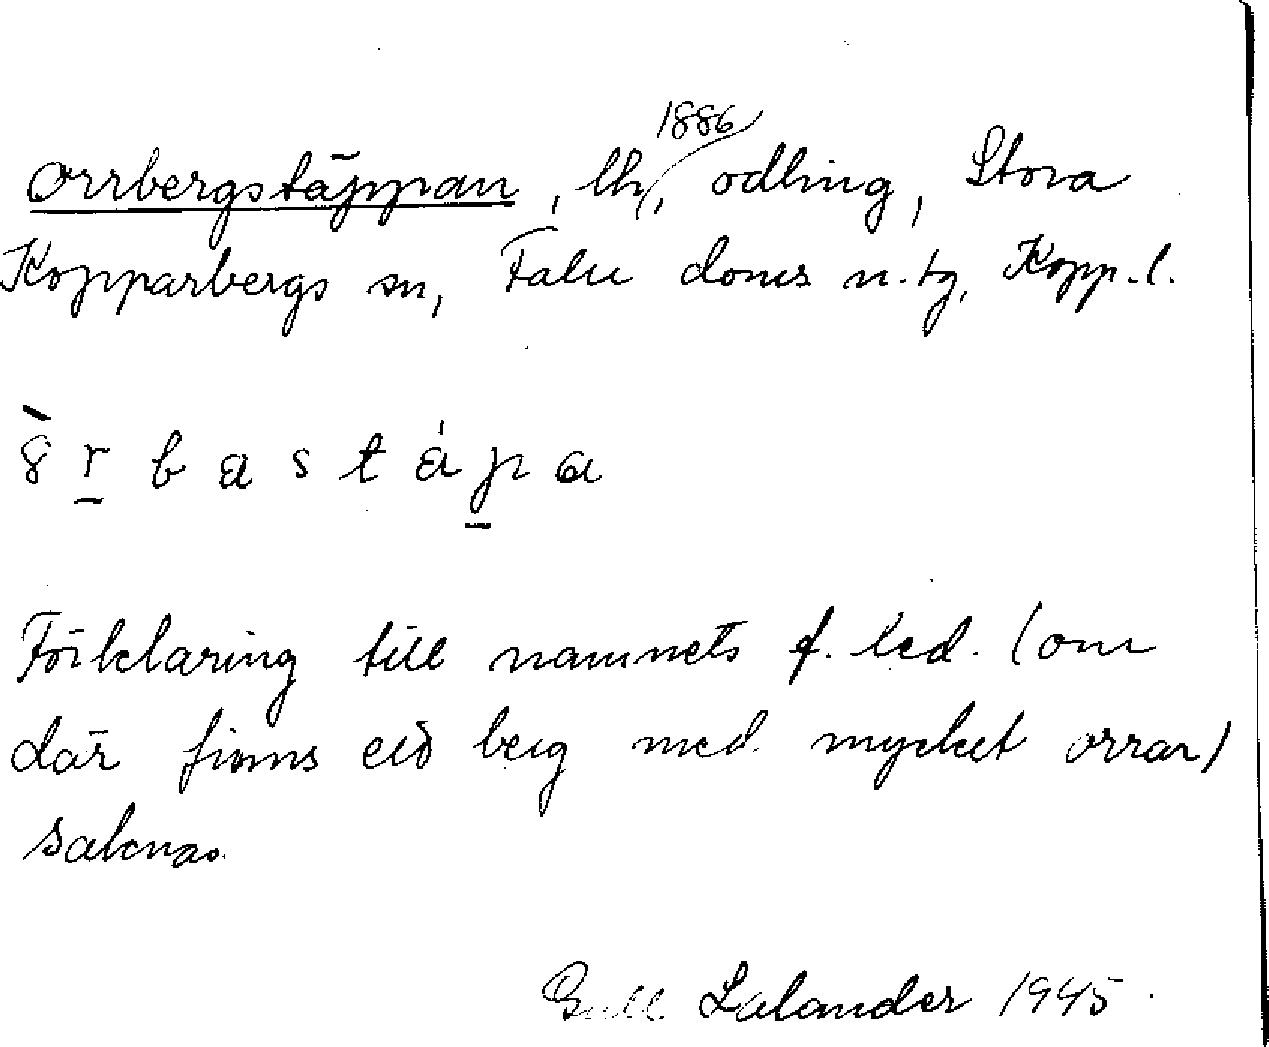 1886
Orrbergstäppan, lh, odling, Stora
Kopparbergs sn, Falu doms n. tg, Kopp. l.
8̀ r̲ b a s t á p̲ a
Förklaring till namnets f. led. (om
där finns ett berg med mycket orrar)
saknas.
Gull Lalander 1945.